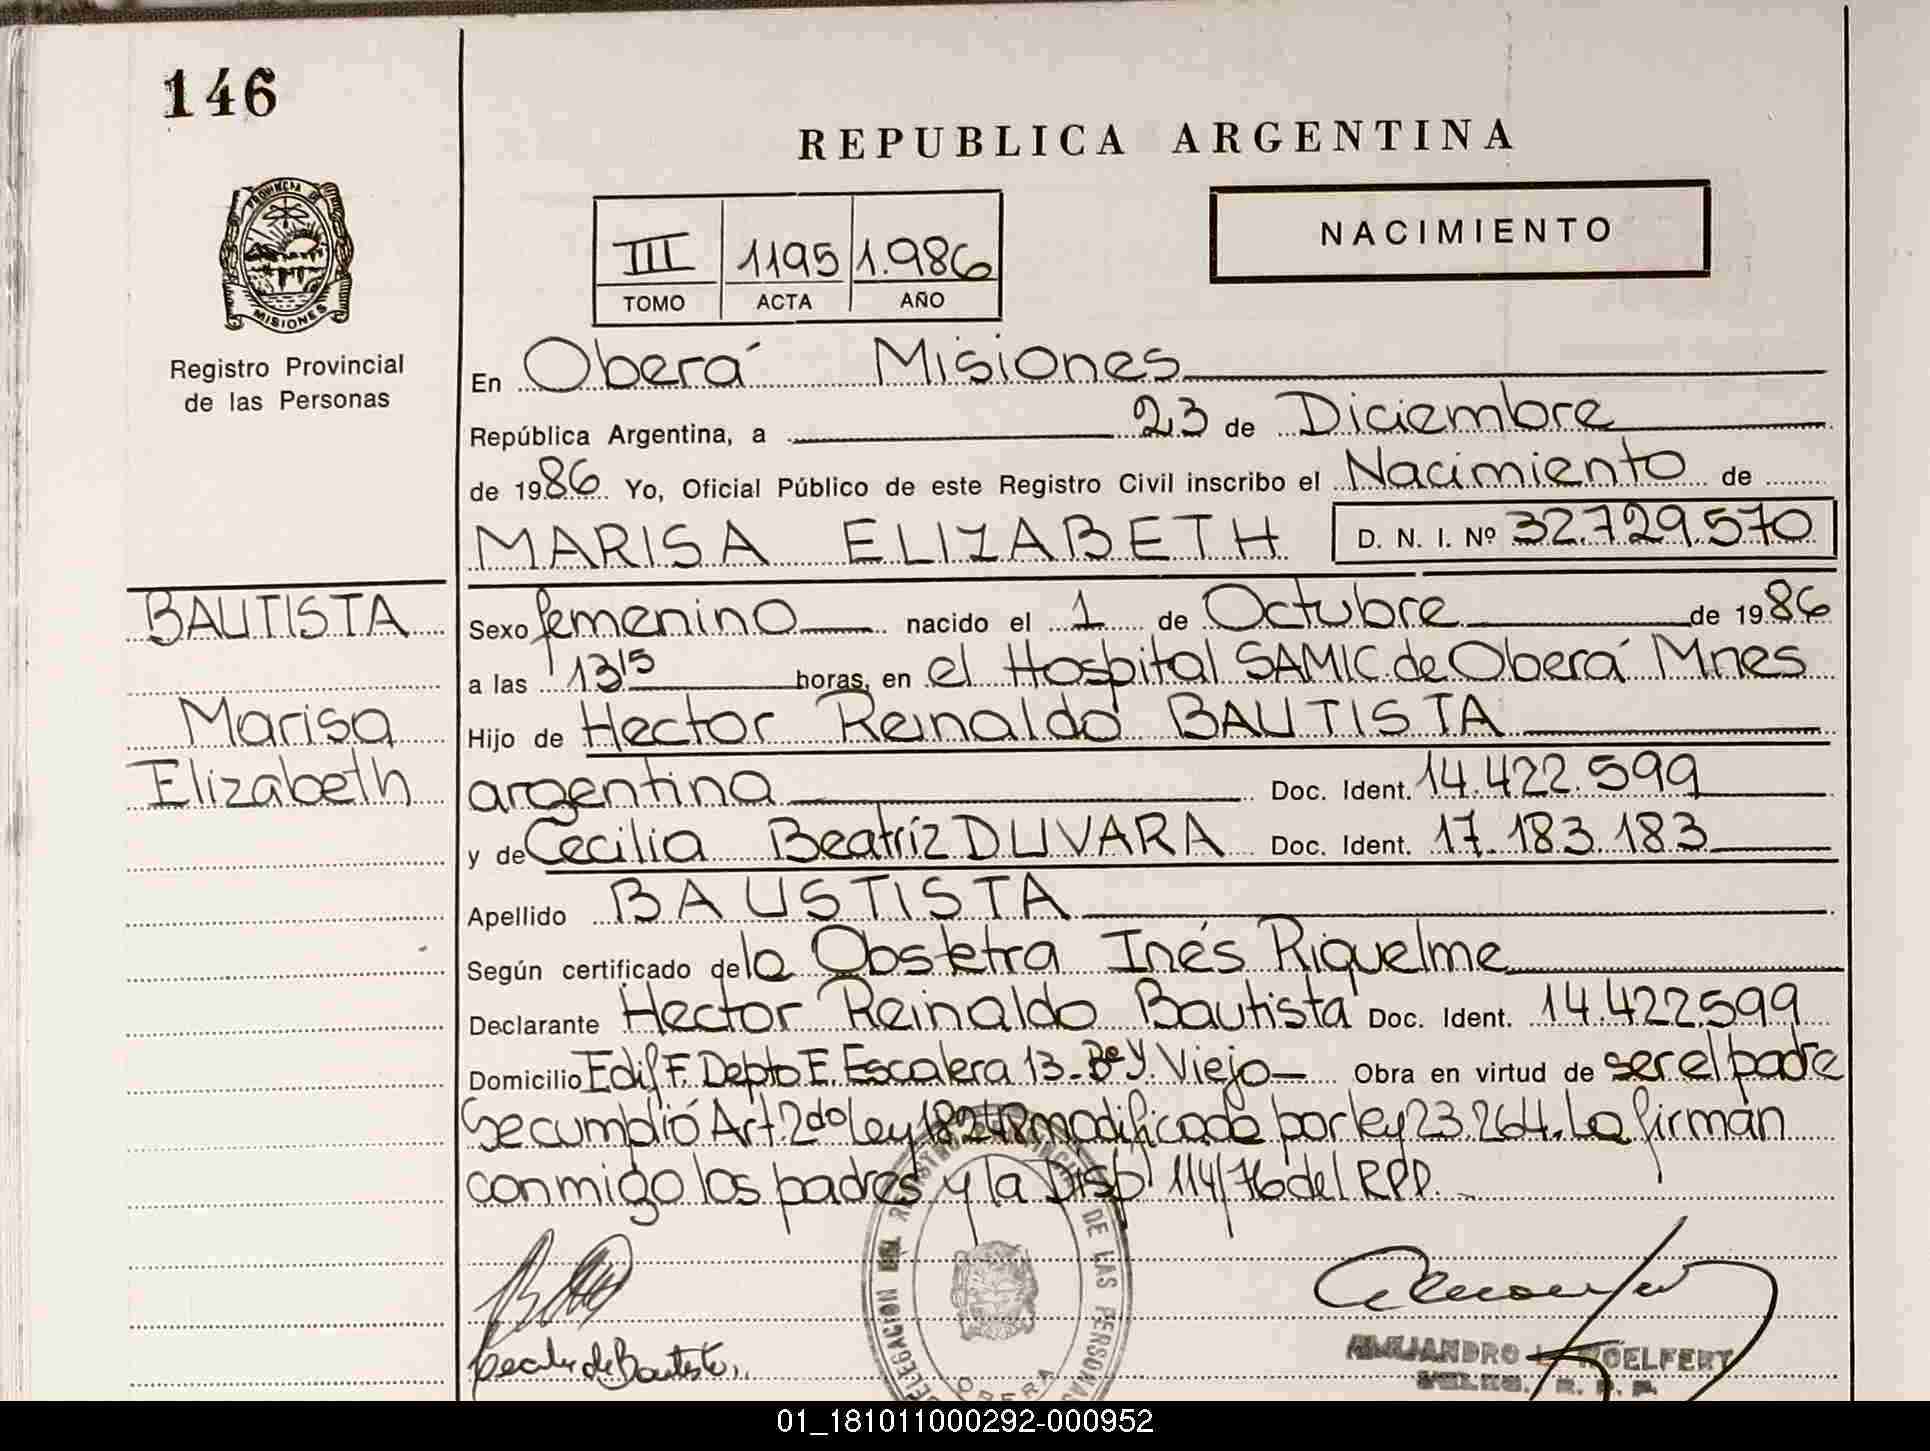 146
REPUBLICA ARGENTINA
NACIMIENTO
III 1195 1.986
TOMO ACTA AÑO
PROVINCIA DE
MISIONES
Registro Provincial
de las Personas
En Oberá Misiones
República Argentina, a 23 de Diciembre
de 1986 Yo, Oficial Público de este Registro Civil inscribo el Nacimiento de
MARISA ELIZABETH D. N. I. Nº 32.729.570
BAUTISTA
Marisa
Elizabeth
Sexo femenino nacido el 1 de Octubre de 1986
a las 13 15 horas, en el Hospital SAMIC de Oberá Mnes
Hijo de Hector Reinaldo BAUTISTA
argentina Doc. Ident. 14.422.599
y de Cecilia Beatríz DUVARA Doc. Ident. 17.183.183
Apellido BAUSTISTA
Según certificado de la Obstetra Inés Riquelme
Declarante Hector Reinaldo Bautista Doc. Ident. 14.422.599
Domicilio Edif F. Depto E. Escalera 13- Bº Y. Viejo Obra en virtud de ser el padre
Se cumplió Art. 2do Ley 18248 modificado por ley 23.264. La firman
conmigo los padres y la Disp 114/76 del RPP.
REGISTRO PROVINCIAL DE LAS PERSONAS
DELEGACION
OBERA
de Bautista
ALEJANDRO
01_181011000292-000952